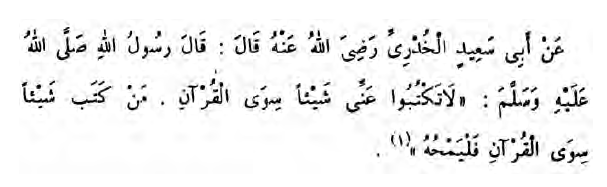 عَنْ أَبِى سَعِيدٍ الْخُدْرِىِّ رَضِىَ اللهُ عَنْهُ قَالَ : قَالَ رَسُولُ اللهِ صَلَّى اللهُ
عَلَيْهِ وَسَلَّمَ : «لَاتَكْتُبُوا عَنِّى شَيْئاً سِوَى الْقُرْآنِ . مَنْ كَتَب شَيْئاً
سِوَى الْقُرْآنِ فَلْيَمْحُهُ»(١) .